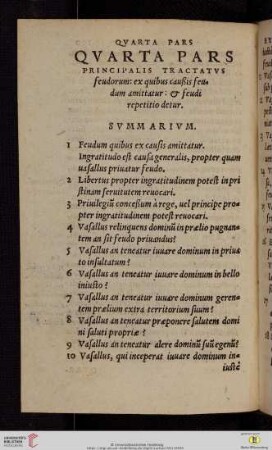 QVARTA PARS
QVARTA PARS
PRINCIPALIS TRACTATVS
feudorum: ex quibus caußis feu-
dum amittatur: & feudi
repetitio detur.
SVMMARIVM.
1 Feudum quibus ex causis amittatur.
Ingratitudo est causa generalis, propter quam
uasallus priuatur feudo.
2 Libertus propter ingratitudinem potest in pri
stinam seruitutem reuocari.
3 Priuilegiũ concessum à rege, uel principe pro-
pter ingratitudinem potest reuocari.
4 Vasallus relinquens dominũ in prælio pugnan-
tem an sit feudo priuandus?
5 Vasallus an teneatur iuuare dominum in priua
to insultatum?
6 Vasallus an teneatur iuuare dominum in bello
iniusto?
7 Vasallus an teneatur iuuare dominum geren-
tem prælium extra territorium suum?
8 Vasallus an teneatur præponere salutem domi
ni saluti propriæ?
9 Vasallus an teneatur alere dominũ suũ egenũ?
10 Vasallus, qui inceperat iuuare dominum in-
iustè